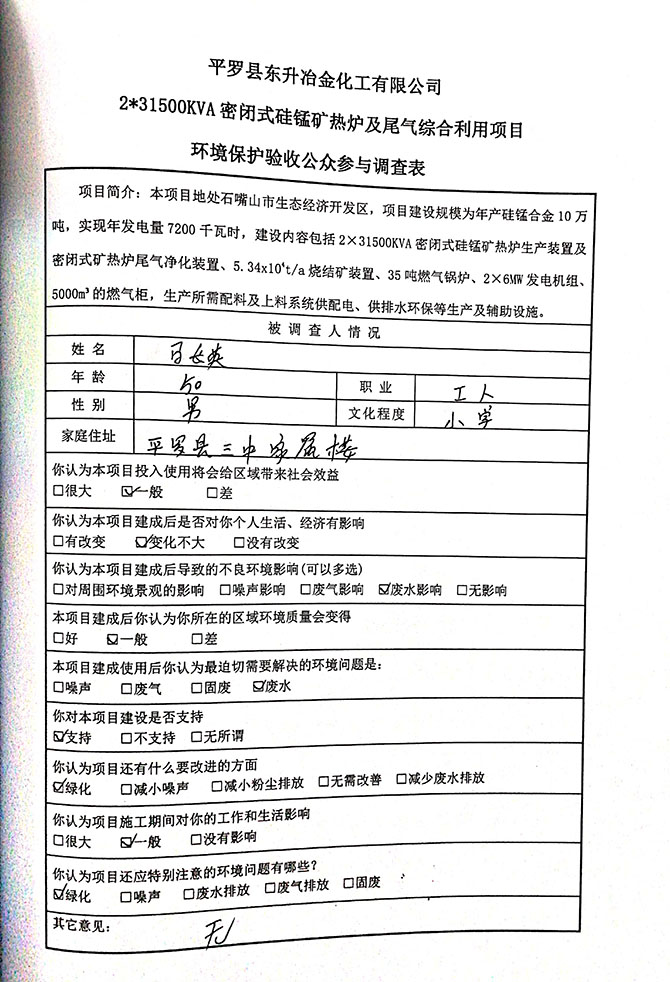 平罗县东升冶金化工有限公司
2*31500KVA 密闭式硅锰矿热炉及尾气综合利用项目
环境保护验收公众参与调查表
项目简介：本项目地处石嘴山市生态经济开发区，项目建设规模为年产硅锰合金 10 万
吨，实现年发电量 7200 千瓦时，建设内容包括 2×31500KVA 密闭式硅锰矿热炉生产装置及
密闭式矿热炉尾气净化装置、5.34x10⁴t/a 烧结矿装置、35 吨燃气锅炉、2×6MW 发电机组、
5000m³的燃气柜，生产所需配料及上料系统供配电、供排水环保等生产及辅助设施。
被 调 查 人 情 况
姓 名
年 龄 50 职 业 工人
性 别 男 文化程度 小学
家庭住址 平罗县三中家属楼
你认为本项目投入使用将会给区域带来社会效益
□很大 ☑一般 □差
你认为本项目建成后是否对你个人生活、经济有影响
□有改变 ☑变化不大 □没有改变
你认为本项目建成后导致的不良环境影响(可以多选)
□对周围环境景观的影响 □噪声影响 □废气影响 ☑废水影响 □无影响
本项目建成后你认为你所在的区域环境质量会变得
□好 ☑一般 □差
本项目建成使用后你认为最迫切需要解决的环境问题是：
□噪声 □废气 □固废 ☑废水
你对本项目建设是否支持
☑支持 □不支持 □无所谓
你认为项目还有什么要改进的方面
☑绿化 □减小噪声 □减小粉尘排放 □无需改善 □减少废水排放
你认为项目施工期间对你的工作和生活影响
□很大 ☑一般 □没有影响
你认为项目还应特别注意的环境问题有哪些？
☑绿化 □噪声 □废水排放 □废气排放 □固废
其它意见： 无